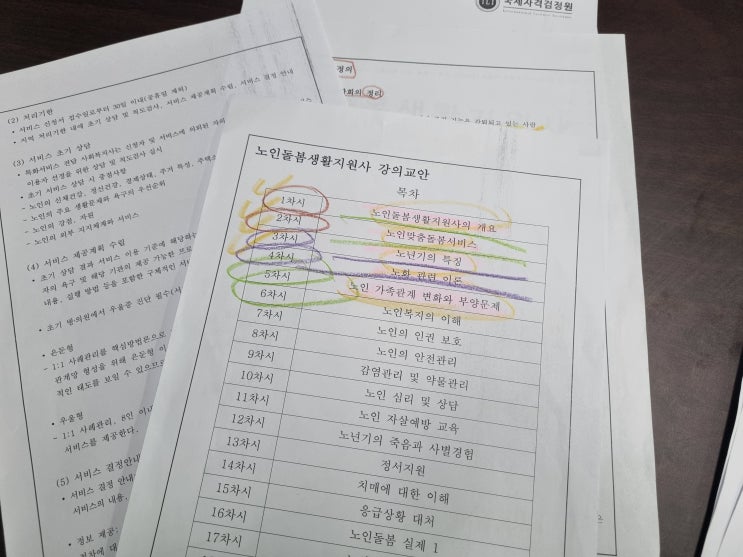 국제자격검정원
정의
정리
있는 사람
(2) 처리기한
• 서비스 신청서 접수일로부터 30일 이내(공휴일 제외)
• 지역 처리기한 내에 초기 상담 및 척도검사, 서비스 제공계획 수립, 서비스 결정 안내
(3) 서비스 초기 상담
• 특화서비스 전담 사회복지사는 신청자 및 서비스에 의뢰된 자의
이용자 선정을 위한 상담 및 척도검사 실시
• 초기 서비스 상담 시 중점사항
- 노인의 신체건강, 정신건강, 경제상태, 주거 특성,
- 노인의 주요 생활문제와 욕구의 우선순위
- 노인의 강점, 자원
- 노인의 외부 지지체계와 서비스
(4) 서비스 제공계획 수립
• 초기 상담 결과 서비스 이용 기준에 해당하는
자의 욕구 및 해당 기관의 제공 가능한
내용, 실행 방법 등을 포함한 구체적인
• 초기 병·의원에서 우울증 진단 필수(서
• 은둔형
- 1:1 사례관리를 핵심방법론으로
관계망 형성을 위해 은둔형
적인 태도를 보일 수 있으므로
• 우울형
- 1:1 사례관리, 8인 이내
서비스를 제공한다.
(5) 서비스 결정안내
• 서비스 결정 안내
서비스의 내용,
• 정보 제공:
노인돌봄생활지원사 강의교안
목차
1차시 노인돌봄생활지원사의 개요
2차시 노인맞춤돌봄서비스
3차시 노년기의 특징
4차시 노화 관련 이론
5차시 노인 가족관계 변화와 부양문제
6차시 노인복지의 이해
7차시 노인의 인권 보호
8차시 노인의 안전관리
9차시 감염관리 및 약물관리
10차시 노인 심리 및 상담
11차시 노인 자살예방 교육
12차시 노년기의 죽음과 사별경험
13차시 정서지원
14차시 치매에 대한 이해
15차시 응급상황 대처
16차시 노인돌봄 실제 1
17차시